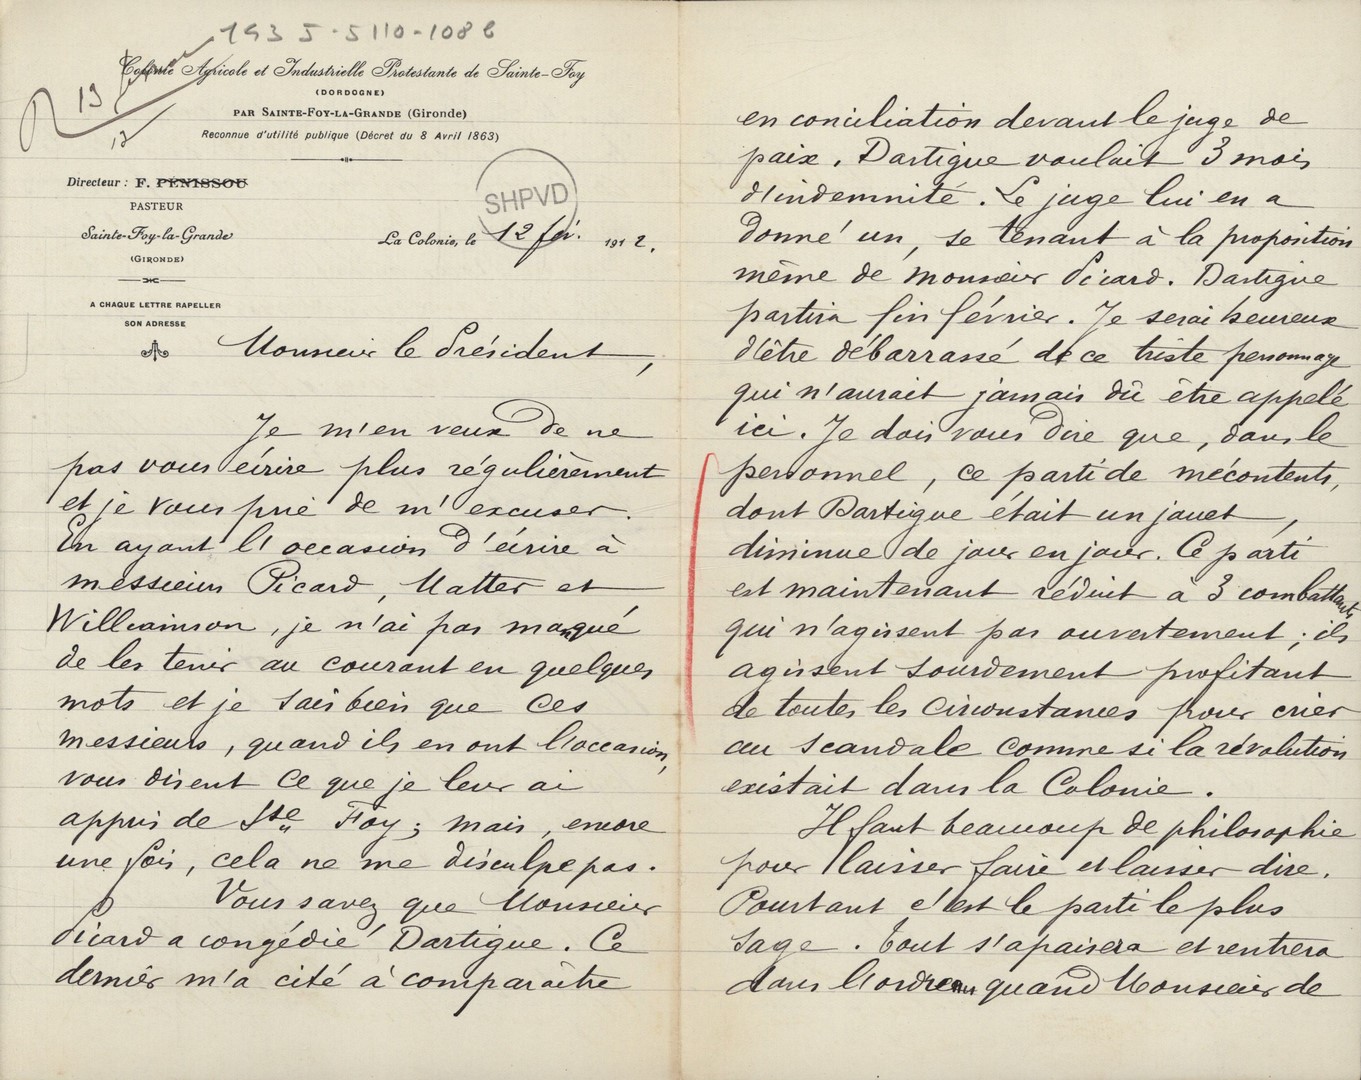 1935-5110-1088
R 13 février
12
Colonie Agricole et Industrielle Protestante de Sainte-Foy
(DORDOGNE)
PAR SAINTE-FOY-LA-GRANDE (Gironde)
Reconnue d'utilité publique (Décret du 8 Avril 1863)
Directeur : F. PÉNISSOU
PASTEUR
Sainte-Foy-la-Grande
(GIRONDE)
A CHAQUE LETTRE RAPELLER
SON ADRESSE
SHPVD
La Colonie, le 12 fév. 1912.
Monsieur le Président,
Je m'en veux de ne
pas vous écrire plus régulièrement
et je vous prie de m'excuser.
En ayant l'occasion d'écrire à
messieurs Picard, Matter et
Williamson, je n'ai pas manqué
de les tenir au courant en quelques
mots et je sais bien que ces
messieurs, quand ils en ont l'occasion,
vous disent ce que je leur ai
appris de Ste Foy ; mais, encore
une fois, cela ne me disculpe pas.
Vous savez que Monsieur
Picard a congédié Dartigue. Ce
dernier m'a cité à comparaître
en conciliation devant le juge de
paix. Dartigue voulait 3 mois
d'indemnité. Le juge lui en a
donné un, se tenant à la proposition
même de monsieur Picard. Dartigue
partira fin février. Je serai heureux
d'être débarrassé de ce triste personnage
qui n'aurait jamais dû être appelé
ici. Je dois vous dire que, dans le
personnel, ce parti de mécontents,
dont Dartigue était un jouet,
diminue de jour en jour. Ce parti
est maintenant réduit à 3 combattants
qui n'agissent pas ouvertement ; ils
agissent sourdement profitant
de toutes les circonstances pour crier
au scandale comme si la révolution
existait dans la Colonie.
Il faut beaucoup de philosophie
pour laisser faire et laisser dire.
Pourtant c'est le parti le plus
sage. Tout s'apaisera et rentrera
dans l'ordre quand Monsieur de